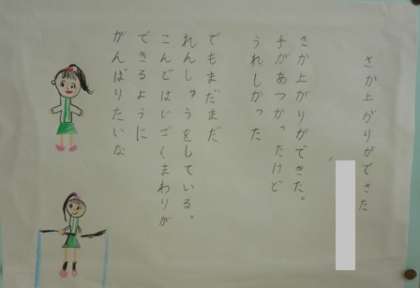 さか上がりができた
さか上がりができた。
手があつかったけど
うれしかった
でもまだまだ
れんしゅうをしている。
こんどはいごくまわりが
できるように
がんばりたいな